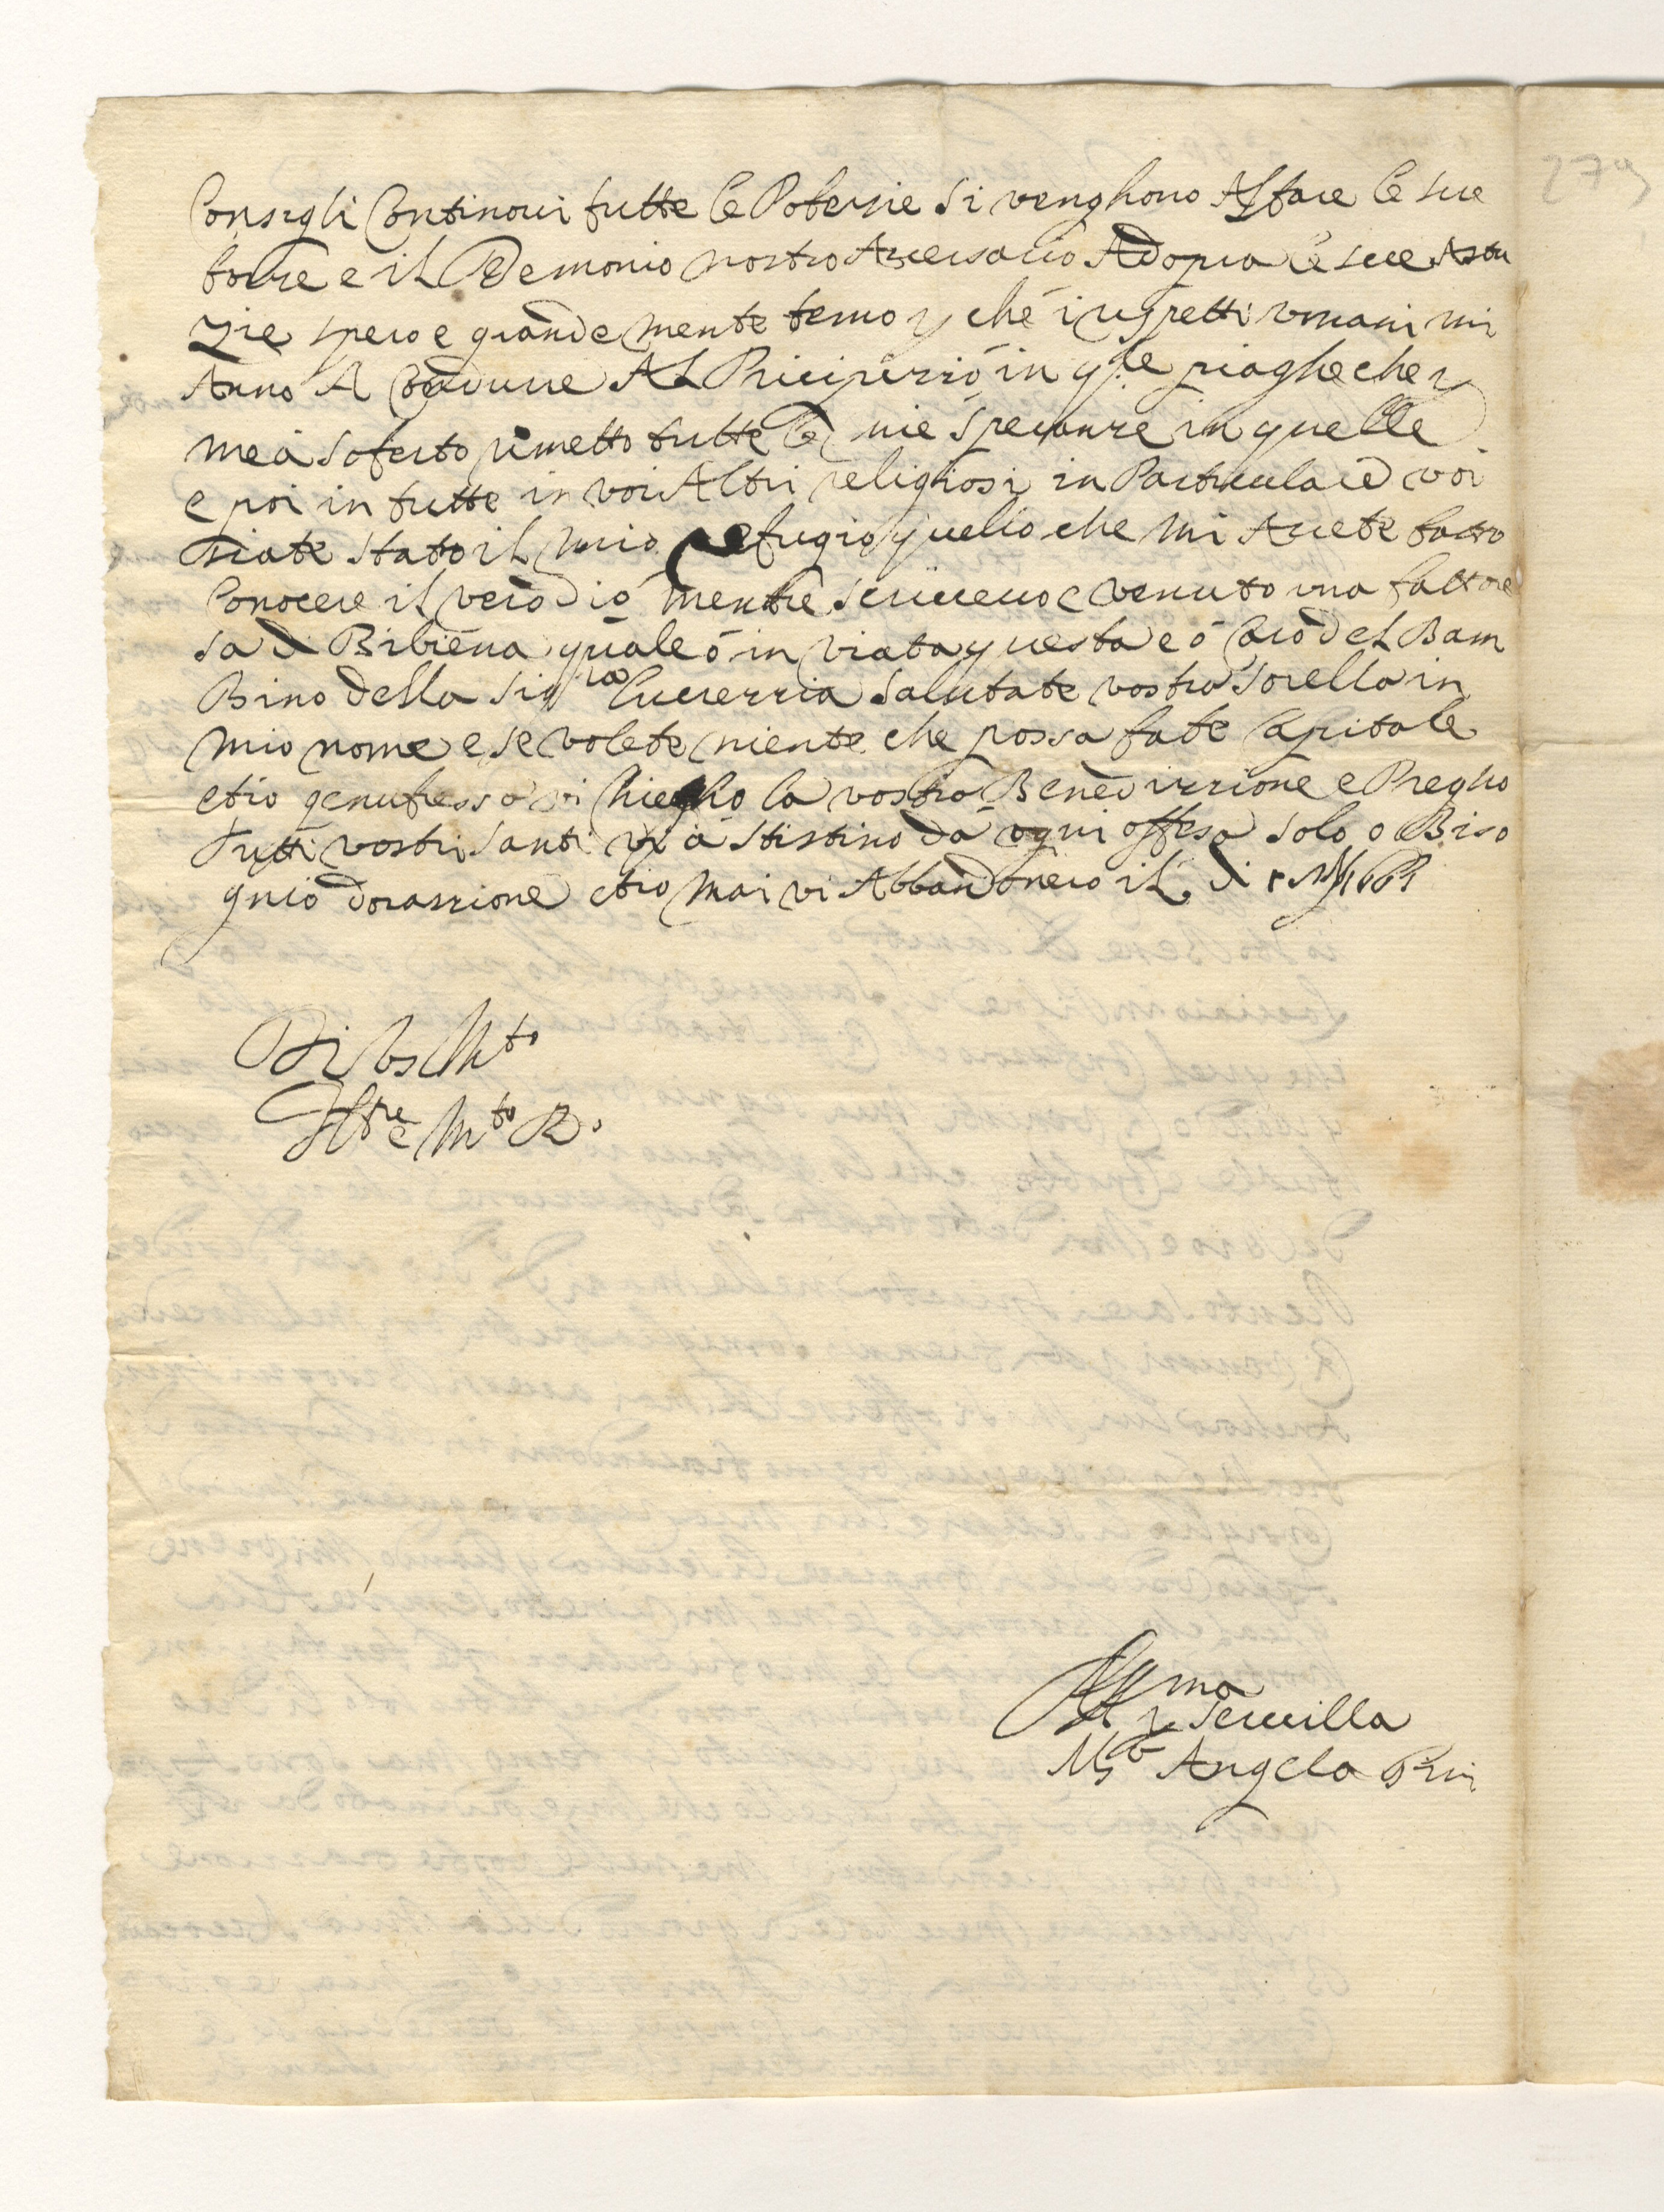 Consigli Continovi tutte le Potensie si venghono Affare le sue
fortse e il Demonio nostro Aversario Adopra le sue Astu
zie spero e grandemente temo p che i rispetti umani mi
Anno A Condurre Al Pricipizzio in q.le piaghe che p
me à soferto rimetto tutte le mie speranze in quelle
e poi in tutte in voi Altri religiosi in Particulare voi
siate stato il mio refugio quello che mi Avete fatto
Conocere il vero Dio mentre scrivevo e venuto una fattore
sa di Bibiena quale ó inviata questa e ó caro del Bam
Bino della Sig.ra Lucrezzia salutate vostra sorella in
mio nome e se volete niente che possa fate Capitale
etio genufressa vi Chiegho la vostra Benedizzione e Pregho
Tutti vostri santi vi à stistino da ogni offesa solo o Biso
gnio dorazzione etio mai vi Abbandonero il di
Di Vs M.to
Ill.re e M.to R.
Aff.ma Servilla
M.a Angela